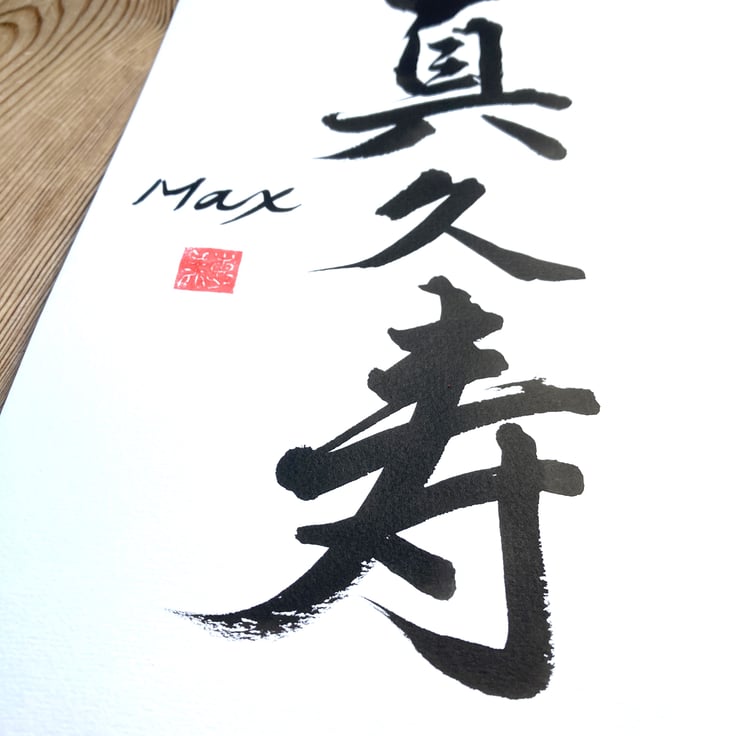 真久寿
Max